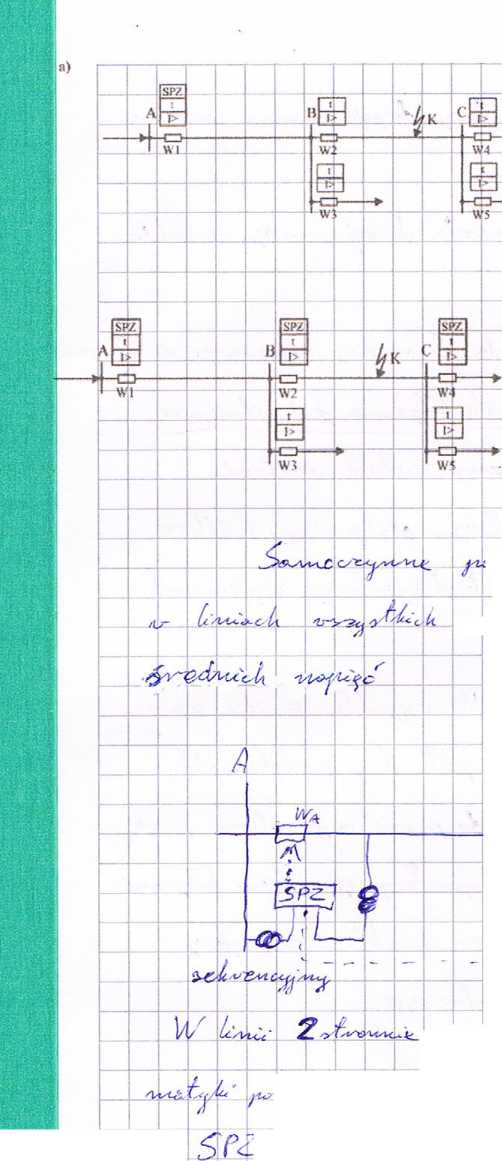 a)
SPZ
t
I>
A
W1
B
t
I>
W2
K
C
t
I>
W4
t
I>
W3
t
I>
W5
SPZ
t
I>
A
W1
SPZ
t
I>
B
W2
K
SPZ
t
I>
C
W4
t
I>
W3
t
I>
W5
Samoczynne
w liniach wszystkich
średnich napięć
A
WA
SPZ
sekwencyjny
W linii 2 stronnie
matyki po
SPZ